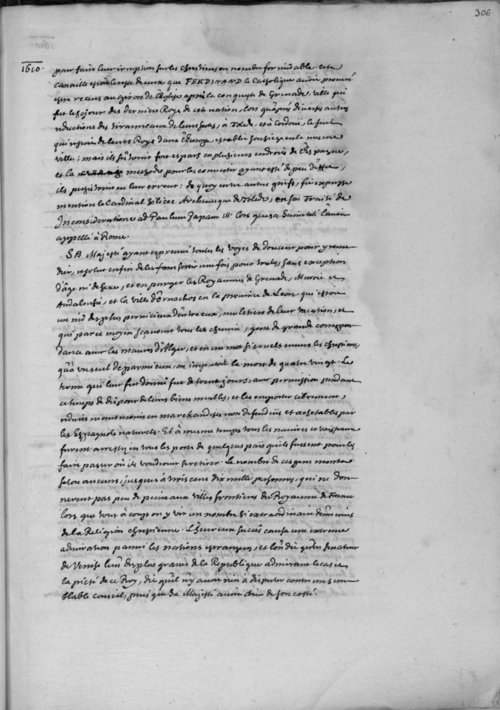 306
1610.
pour faire leur irruption sur les chrestiens en nombre formidable. cete
canaille estoit issue de ceux que FERDINAND le Catholique avoit
receus au giron de l'Eglise apres la conqueste de Grenade, ville qui
fut le sejour des derniers Roys de cete nation, lors qu'apres divers autres
reductions des
qui restoit de leurs Roys dans l'Europe, establit son siege en la mesme
ville: mais ils s'estoient fort espars en plusieurs endroits de l'Espagne,
et la methode pour les convertir ayant esté de peu d'effet,
ils persistoient en leur erreur: de quoy entre autres griefs, fit expresse
mention le Cardinal Siliceo Archevesque de Tolede, en son Traité de
Inconsideratione ad Paulum Papam III. lors que sa Sainteté l'avoit
appellé à Rome.
SA Majesté ayant esprouvé toutes les voyes de douceur pour y reme-
dier, resolut enfin de les faire sortir une fois pour toutes, sans exception
d'âge ni de sexe, et en purger les Royaumes de Grenade, Murcie et
Andalousie, et la ville d'Ornachos en la province de Leon qui estoit
un nid des plus pernicieux d'entre eux, muletiers de leur vacation, et
qui par ce moyen scavoient tous les chemins, gens de grande correspon-
dance avec les maures d'Alger, et envers les chrestiens,
qu'à un seul d'eux, on imputoit la mort de quatre vingt. Le
terme qui leur fut donné fut de trente jours, avec permission pendant
ce temps de disposer de leurs biens meubles, et les emporter librement,
reduits neantmoins en marchandises non defendues et achetables par
les Espagnols naturels. Et à mesme temps tous les navires et vaisseaux
furent arrestez en tous les ports de quelque païs qu'ils fussent pour les
faire passer où ils voudroient se retirer. le nombre de ces gens montoit
selon aucuns, jusques à trois cens dix mille personnes, qui ne don-
nerent pas peu de peine aux villes frontieres du Royaume de France
lors que tout à coup on y vit un nombre si extraordinaire d'ennemis
de la Religion chrestienne. L'heureux succés causa une extreme
admiration parmi les nations estrangeres, et l'on dit qu'un Senateur
de Venise l'un des plus graves de la Republique admirant le cas et
la pieté de ce Roy, dit qu'il n'y avoit rien à disputer contre un sem-
blable conseil, puis que Sa Majesté avoit Dieu de son costé.